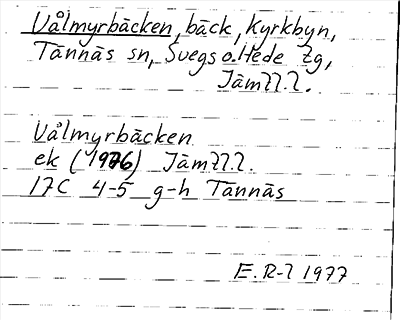 Vålmyrbäcken, bäck, Kyrkbyn,
Tännäs sn, Svegs o. Hede tg,
Jämtl. l.
Vålmyrbäcken
ek (1976) Jämtl. l.
17C 4-5 g-h Tännäs
E. R-l 1977